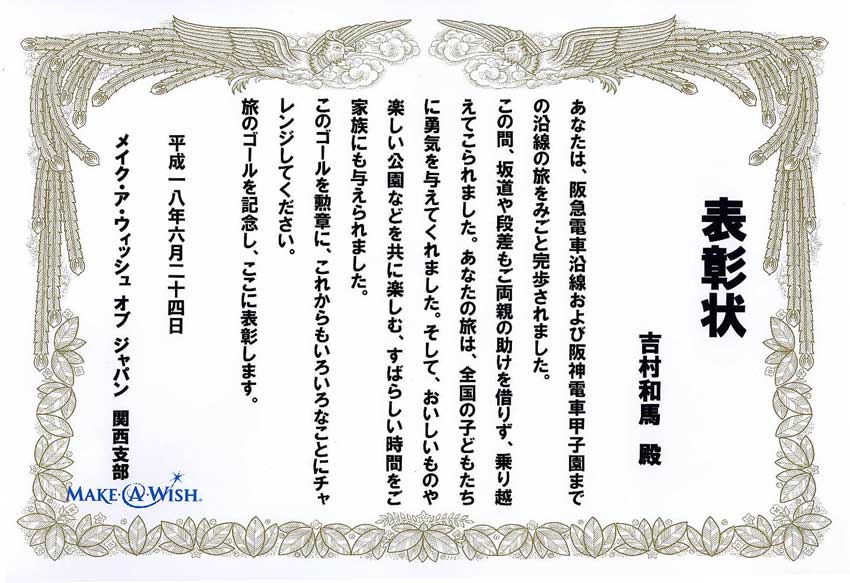 表彰状
吉村和馬 殿
あなたは、阪急電車沿線および阪神電車甲子園まで
の沿線の旅をみごと完歩されました。
この間、坂道や段差もご両親の助けを借りず、乗り越
えてこられました。あなたの旅は、全国の子どもたち
に勇気を与えてくれました。そして、おいしいものや
楽しい公園などを共に楽しむ、すばらしい時間をご
家族にも与えられました。
このゴールを勲章に、これからもいろいろなことにチャ
レンジしてください。
旅のゴールを記念し、ここに表彰します。
平成一八年六月二十四日
メイク・ア・ウィッシュ オブ ジャパン 関西支部
MAKE·A·WISH®